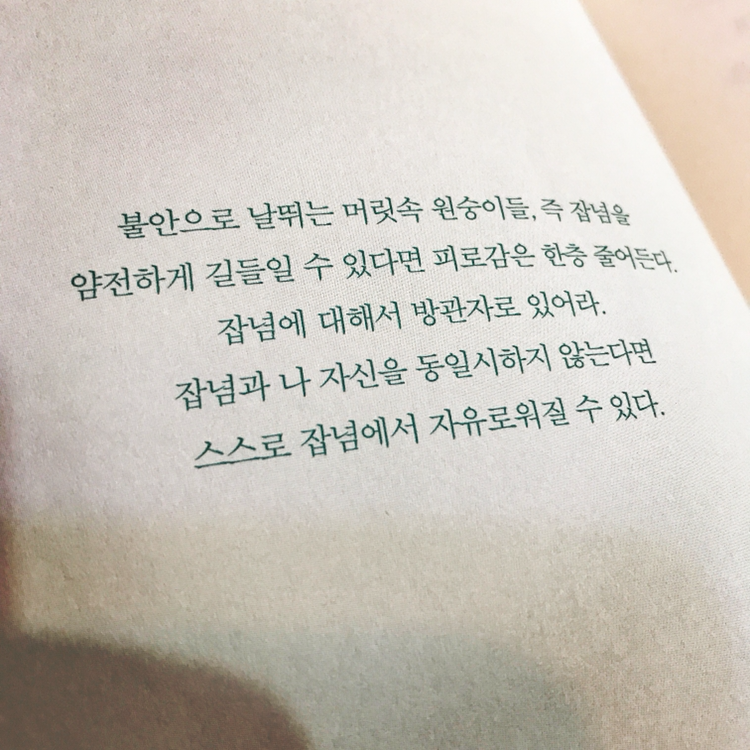 불안으로 날뛰는 머릿속 원숭이들, 즉 잡념을
얌전하게 길들일 수 있다면 피로감은 한층 줄어든다.
잡념에 대해서 방관자로 있어라.
잡념과 나 자신을 동일시하지 않는다면
스스로 잡념에서 자유로워질 수 있다.